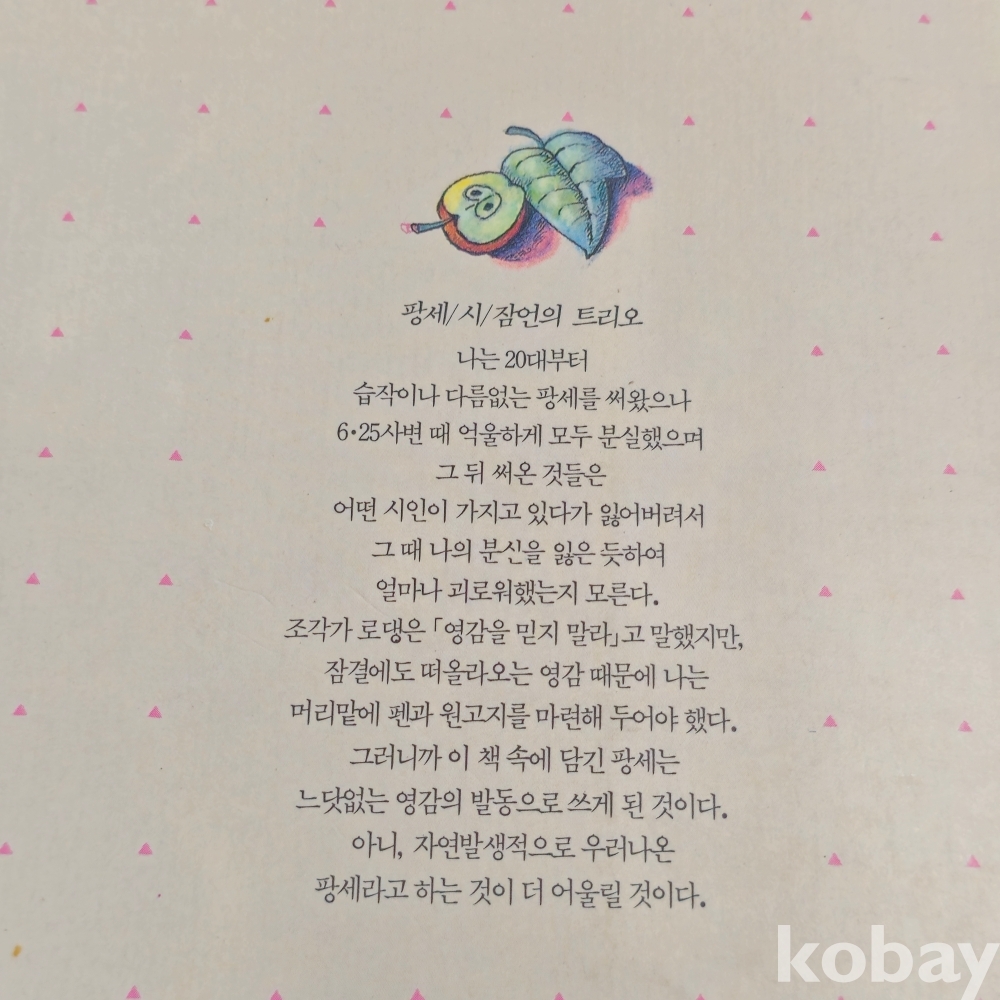 팡세/시/잠언의 트리오
나는 20대부터
습작이나 다름없는 팡세를 써왔으나
6·25사변 때 억울하게 모두 분실했으며
그 뒤 써온 것들은
어떤 시인이 가지고 있다가 잃어버려서
그 때 나의 분신을 잃은 듯하여
얼마나 괴로워했는지 모른다.
조각가 로댕은 「영감을 믿지 말라」고 말했지만,
잠결에도 떠올라오는 영감 때문에 나는
머리맡에 펜과 원고지를 마련해 두어야 했다.
그러니까 이 책 속에 담긴 팡세는
느닷없는 영감의 발동으로 쓰게 된 것이다.
아니, 자연발생적으로 우러나온
팡세라고 하는 것이 더 어울릴 것이다.
kobay